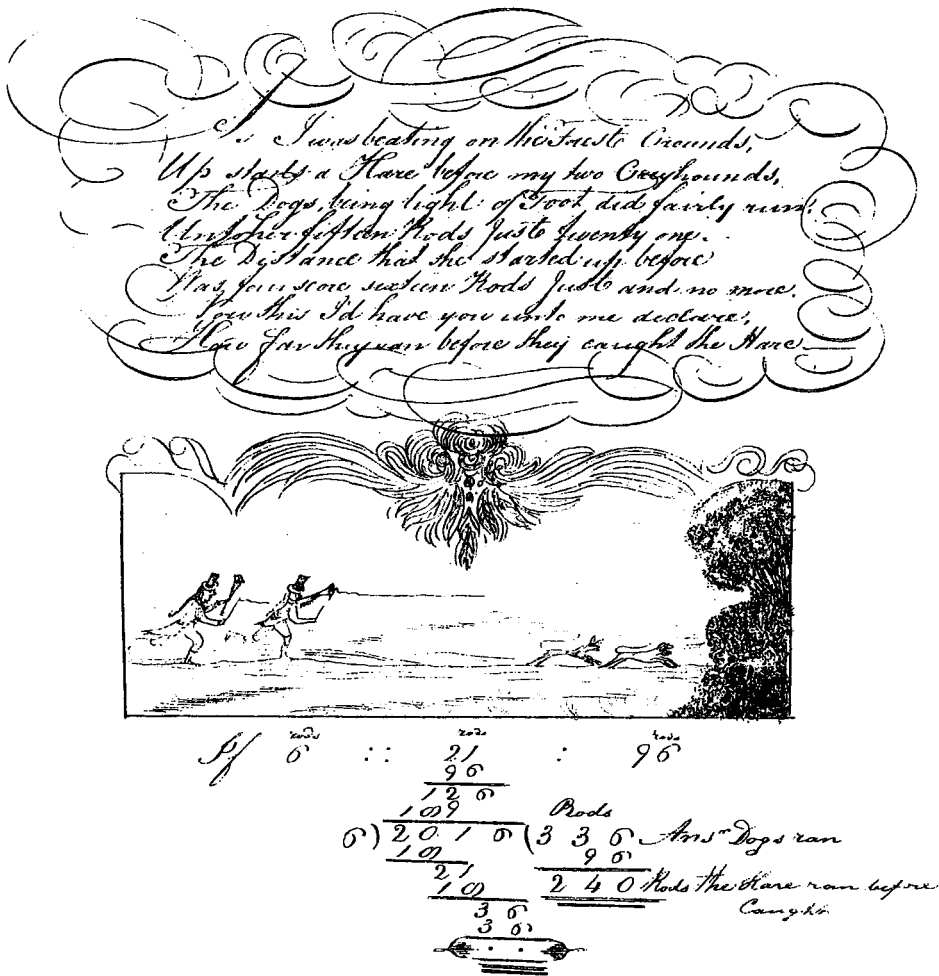 As I was beating on the Forest Grounds,
Up starts a Hare before my two Greyhounds,
The Dogs, being light of Foot did fairly run,
Unto her fifteen Rods Just twenty one.
The Distance that she started up before
Was four score sixteen Rods Just and no more.
Now this I'd have you unto me declare,
How far they ran before they caught the Hare
rods rods rods
If 6 :: 21 : 96
96
126
189 Rods
6)2016(336 Ansr Dogs ran
18 96
21 240 Rods the Hare ran before
18 Caught
36
36